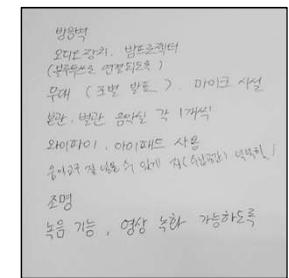 방음벽
오디오 장치, 빔프로젝터
(블루투스로 연결되도록)
무대 (조별 발표), 마이크 시설
본관, 별관 음악실 각 1개씩
와이파이, 아이패드 사용
넣을 수 있게 장(수납공간) 넉넉히!
조명
녹음 기능, 영상 녹화 가능하도록